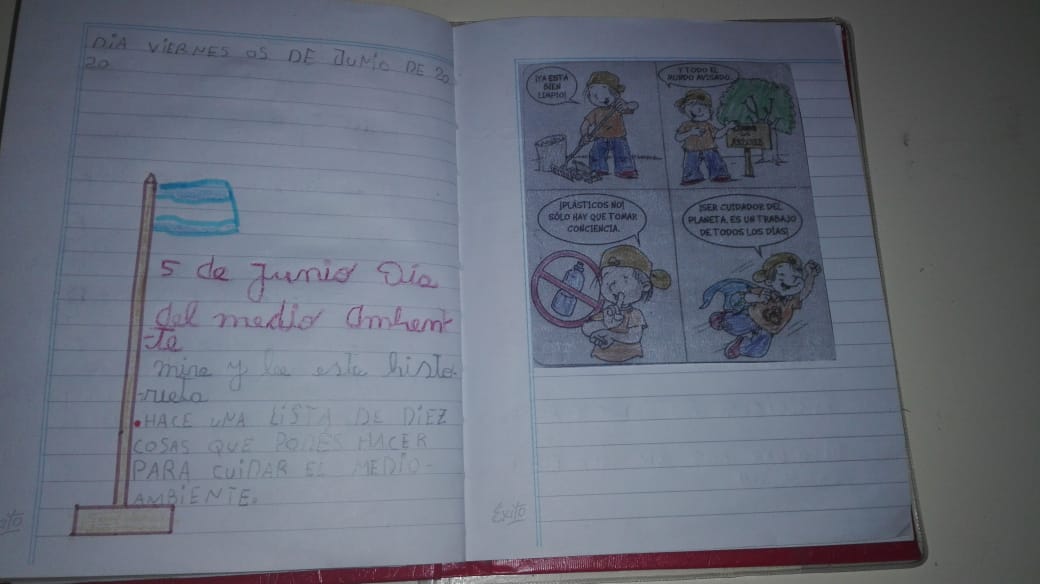 DIA VIERNES 05 DE JUNIO DE 20
20
5 de Junio Día
del medio ambien-
-te
mira y lee esta histo-
-rieta
• HACE UNA LISTA DE DIEZ
COSAS QUE PODES HACER
PARA CUIDAR EL MEDIO-
AMBIENTE.
¡YA ESTÁ
BIEN
LIMPIO!
Y TODO EL
MUNDO AVISADO.
¡PLÁSTICOS NO!
SÓLO HAY QUE TOMAR
CONCIENCIA.
¡SER CUIDADOR DEL
PLANETA, ES UN TRABAJO
DE TODOS LOS DÍAS!
Éxito